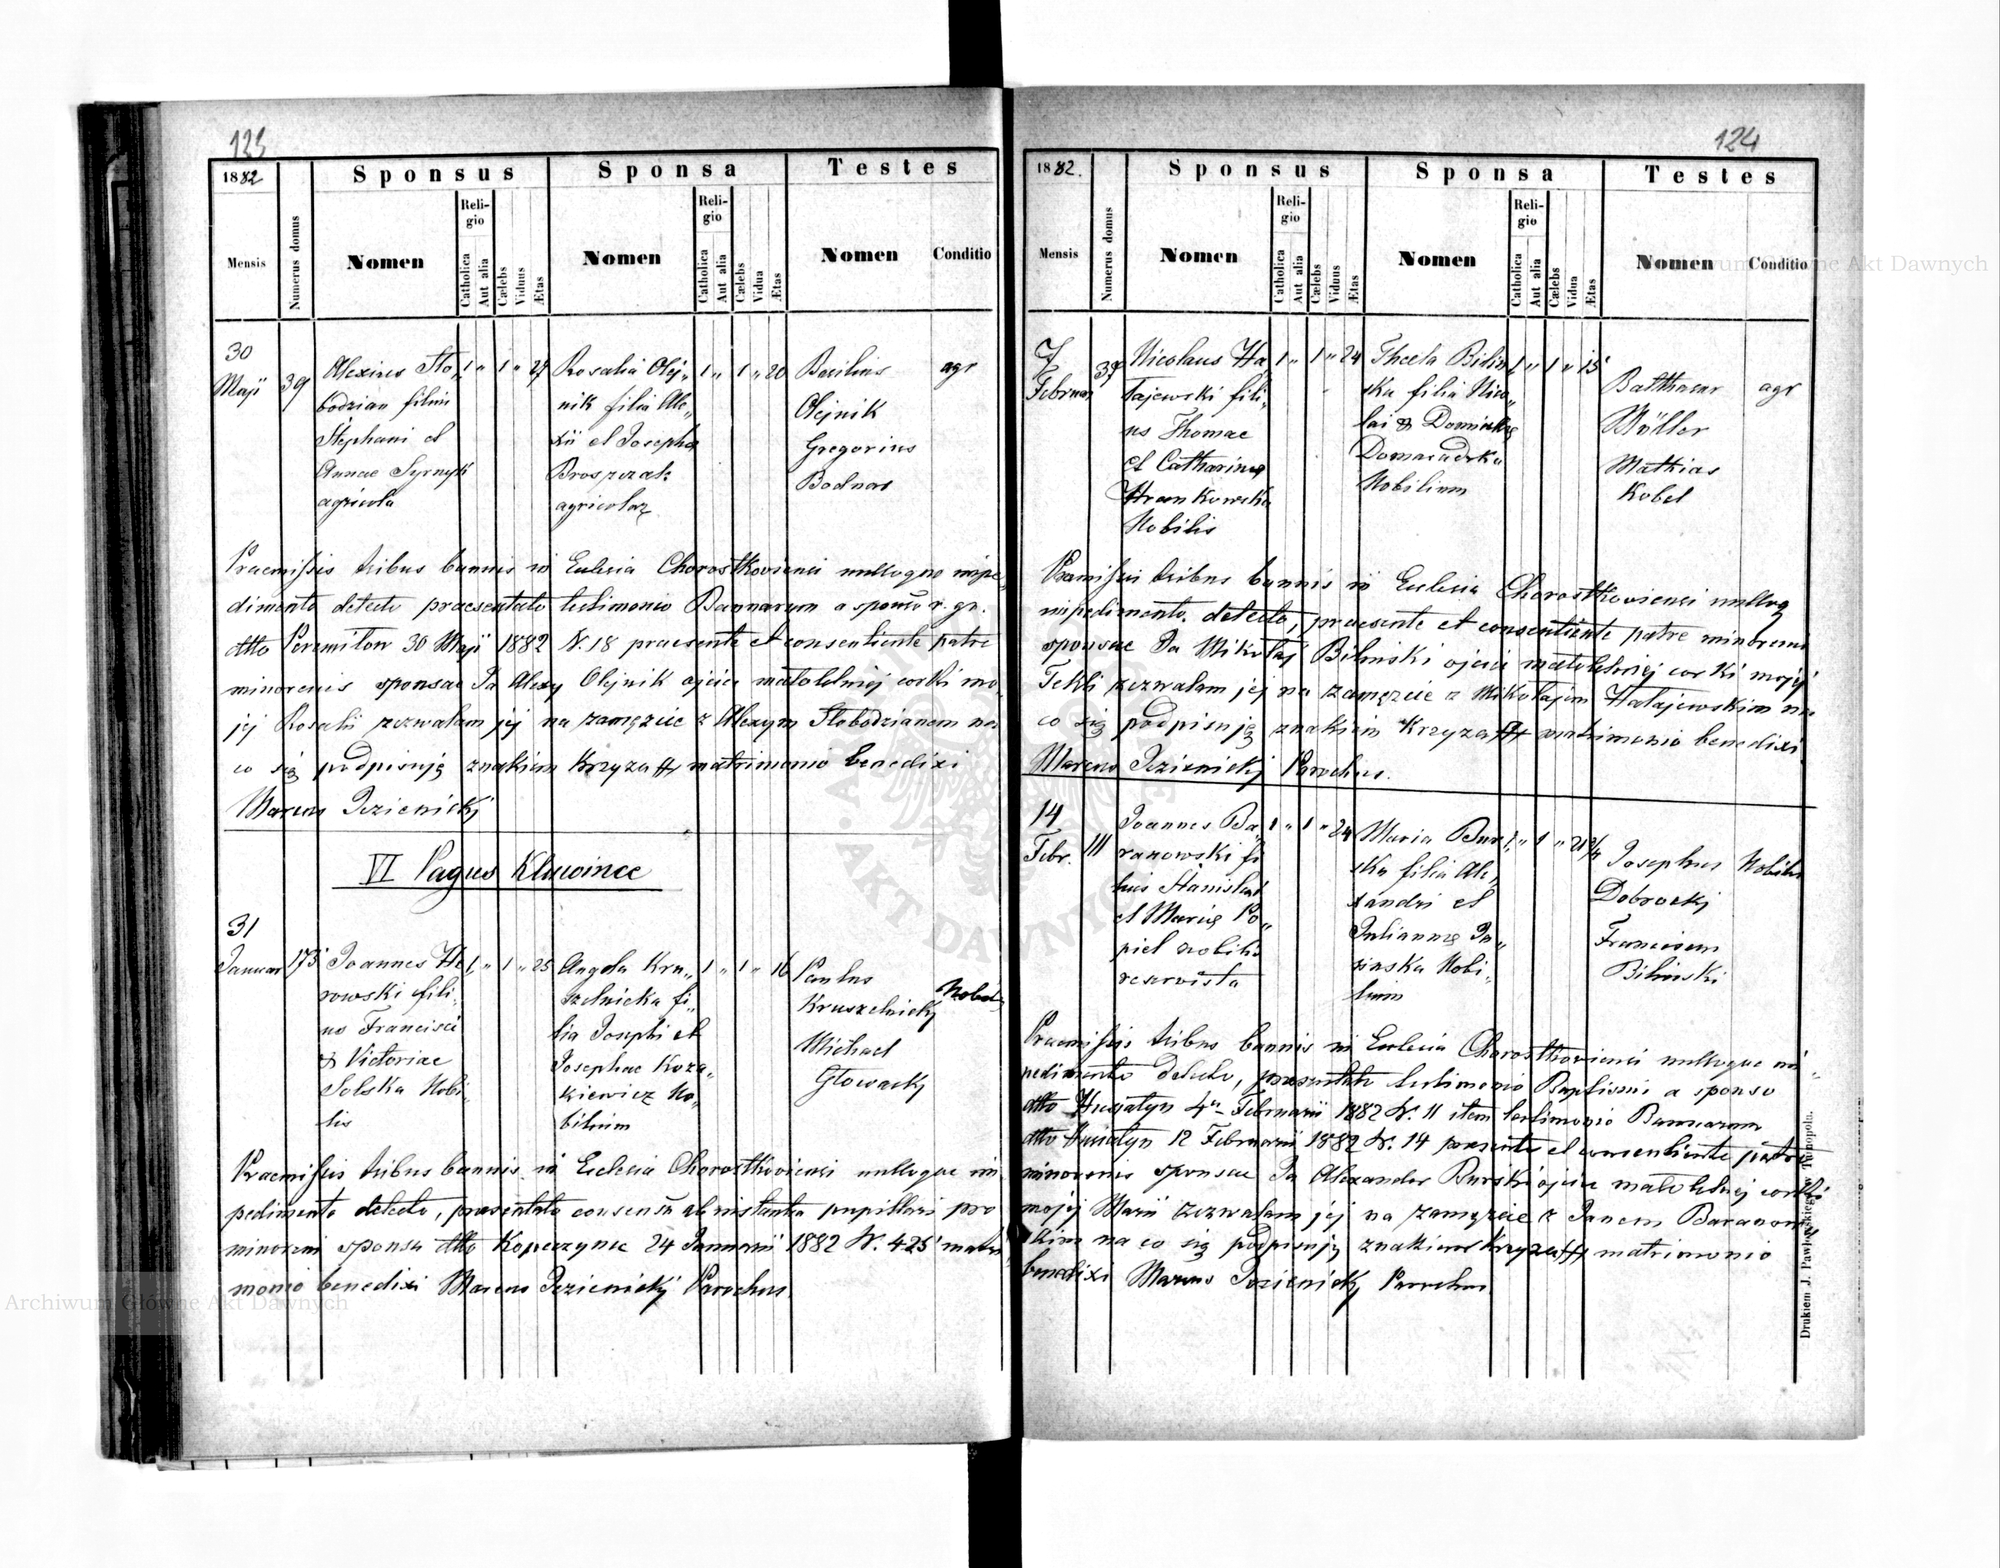 123
1882
Sponsus
Sponsa
Testes
Mensis
Numerus domus
Nomen
Religio
Catholica
Aut alia
Cælebs
Viduus
Ætas
Nomen
Religio
Catholica
Aut alia
Cælebs
Vidua
Ætas
Nomen
Conditio
30
Maji
39
Alexius Sło„
bodzian filius
Stephani et
Annae Syrnyk
agricola
1 „ 1 „ 27
Rosalia Olej„
nik filia Ale„
xii et Josepha
Broszczak
agricolar
1 „ 1 „ 20
Basilius
Olejnik
Gregorius
Bodnar
agr
Praemissis tribus bannis in Eclesia Chorostkoviensi nulloque impe„
dimento detecto praesentato testimonio Bannorum a sponso r. gr.
dtto Peremilow 30 Maji 1882 N. 18 praesente et consentiente patre
minorenis sponsae Ja Alexy Olejnik ojciec małoletniej corki mo„
jej Rosalii zezwalam jej na zamęzcie z Alexym Słobodzianem na
co się podpisuję znakiem Krzyza ++ matrimonio benedixi
Marcus Jezienicki
VI Pagus Kluwince
31
Januar
173
Joannes He
rowski fili„
us Francisci
& Victoriae
Solska Nobi„
lis
1 „ 1 „ 25
Angela Kru„
szelnicka fi„
lia Josephi et
Josephae Koza„
kiewicz No„
bilium
1 „ 1 „ 16
Paulus
Kruszelnicky
Michael
Głowacky
Nobil
Praemissis tribus bannis in Eclesia Chorostkoviensi nulloque im
pedimento detecto, praesentato consensu ab instantia pupillari pro
minoreni sponsa dtto Kopeczynce 24 Januarii 1882 N. 425 matri
monio benedixi Marcus Jezienicky Parochus
124
1882.
Sponsus
Sponsa
Testes
Mensis
Numerus domus
Nomen
Religio
Catholica
Aut alia
Cælebs
Viduus
Ætas
Nomen
Religio
Catholica
Aut alia
Cælebs
Vidua
Ætas
Nomen
Conditio
7
Februar
37
Nicolaus Ha„
łajewski fili„
us Thomae
et Catharinae
Hrankowska
Nobilis
1 „ 1 „ 24
Thecla Bilin
ska filia Nico„
lai & Dominikae
Domaradzka
Nobilium
1 „ 1 „ 15
Balthasar
Müller
Mathias
Kobel
agr
Praemissis tribus bannis in Eclesia Chorostkoviensi nulloq
impedimento detecto, praesente et consentiente patre minoreni
sponsae Ja Mikołaj Bilinski ojciec małoletniej corki mojej
Tekli zezwalam jej na zamęzcie z Mikołajem Hałajewskim na
co się podpisuję znakiem Krzyza ++ matrimonio benedixi
Marcus Jezienickj Parochus.
14
Febr.
111
Joannes Ba„
ranowski fi
lius Stanislai
et Mariae Po„
piel nobilis
reservista
1 „ 1 „ 24
Maria Bur„
ska filia Ale„
xandri et
Juliannae Ja„
sinska Nobi„
lium
1 „ 1 „ 21
Josephus
Dobrockj
Franciscus
Bilinski
Nobiles
Praemissis tribus bannis in Eclesia Chorostkoviensi nulloque im„
pedimento detecto, praesentato testimonio Baptismi a sponso
dtto Husiatyn 4 Februarii 1882 N. 11 item testimonio Bannorum
dtto Husiatyn 12 Februarii 1882 N. 14 praesente et consentiente patre
minorenis sponsae Ja Alexander Burski ojciec małoletniej corki
mojej Marii zezwalam jej na zamęzcie z Janem Baranow
skim na co się podpisuję znakiem Krzyza ++ matrimonio
benedixi Marcus Jezienicky Parochus
Drukiem J. Pawłowskiego w Tarnopolu.
Archiwum Główne Akt Dawnych
Archiwum Główne Akt Dawnych